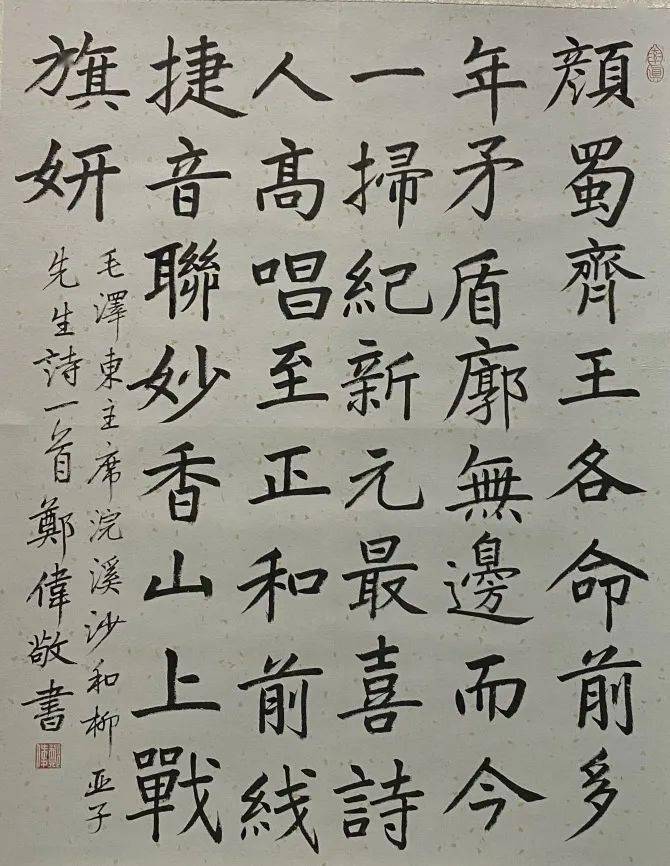 顔蠋齊王各命前多
年矛盾廓無邊而今
一掃紀新元最喜詩
人高唱至正和前綫
捷音聯妙香山上戰
旗妍
毛澤東主席浣溪沙和柳亞子
先生詩一首鄭偉敬書